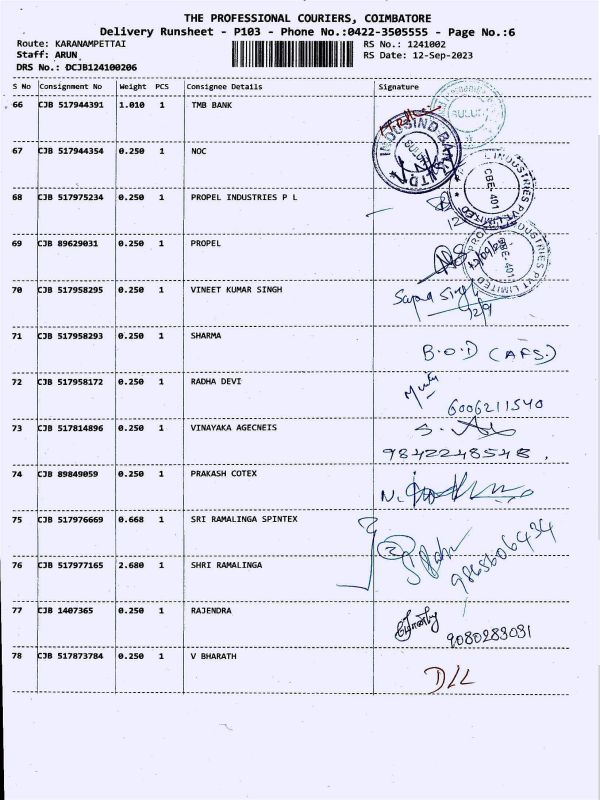 THE PROFESSIONAL COURIERS, COIMBATORE
Delivery Runsheet - P103 - Phone No.:0422-3505555 - Page No.:6
Route: KARANAMPETTAI RS No.: 1241002
Staff: ARUN RS Date: 12-Sep-2023
DRS No.: DCJB124100206
S No Consignment No Weight PCS Consignee Details Signature
66 CJB 517944391 1.010 1 TMB BANK
INDUSIND BANK LTD
67 CJB 517944354 0.250 1 NOC
INDUSTRIES PVT LIMITED
CBE-401
68 CJB 517975234 0.250 1 PROPEL INDUSTRIES P L
12
69 CJB 89629031 0.250 1 PROPEL
INDUSTRIES PVT LIMITED
CBE-401
70 CJB 517958295 0.250 1 VINEET KUMAR SINGH
12/9
71 CJB 517958293 0.250 1 SHARMA B.O.D (AFS.)
72 CJB 517958172 0.250 1 RADHA DEVI
6006211540
73 CJB 517814896 0.250 1 VINAYAKA AGECNEIS
9842248548.
74 CJB 89849059 0.250 1 PRAKASH COTEX
75 CJB 517976669 0.668 1 SRI RAMALINGA SPINTEX
2
9865606434
76 CJB 517977165 2.680 1 SHRI RAMALINGA
77 CJB 1407365 0.250 1 RAJENDRA
9080283031
78 CJB 517873784 0.250 1 V BHARATH
D/L